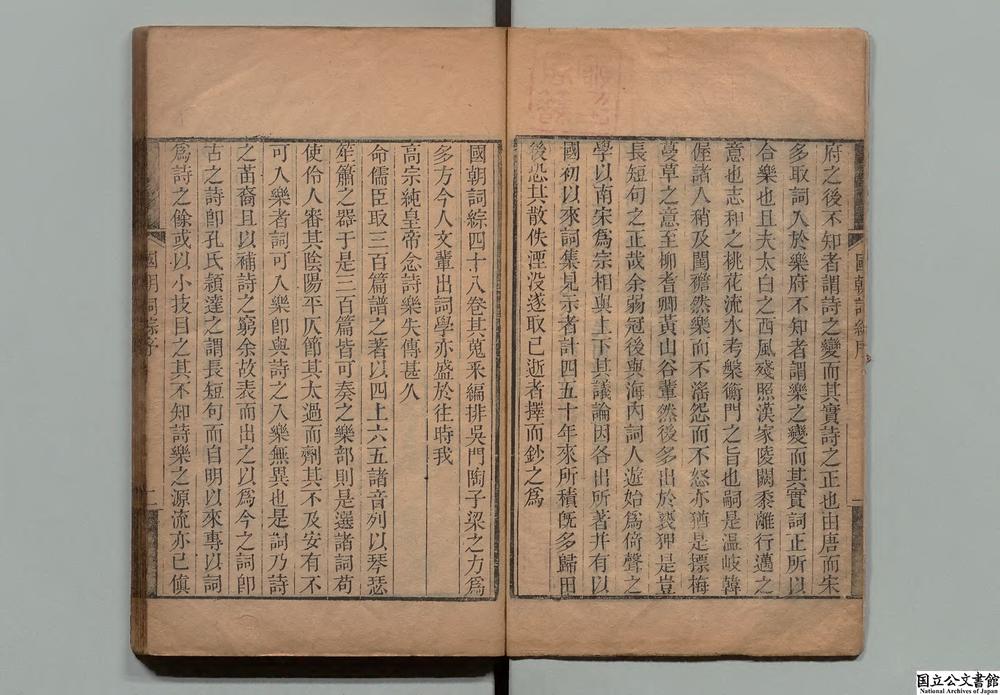 府之後不知者謂詩之變而其實詩之正也由唐而宋
多取詞入於樂府不知者謂樂之變而其實詞正所以
合樂也且夫太白之西風殘照漢家陵闕黍離行邁之
意也志和之桃花流水考槃衡門之旨也嗣是溫岐韓
偓諸人稍及閨襜然樂而不淫怨而不怒亦猶是摽梅
蔓草之意至柳耆卿黃山谷輩然後多出於褻狎是豈
長短句之正哉余弱冠後與海內詞人遊始爲倚聲之
學以南宋爲宗相與上下其議論因各出所著并有以
國初以來詞集見示者計四五十年來所積旣多歸田
後恐其散佚湮没遂取已逝者擇而鈔之爲
國朝詞綜四十八卷其蒐釆編排吳門陶子梁之力爲
多方今人文輩出詞學亦盛於往時我
高宗純皇帝念詩樂失傳甚久
命儒臣取三百篇譜之著以四上六五諸音列以琴瑟
笙簫之器于是三百篇皆可奏之樂部則是選諸詞苟
使伶人審其陰陽平仄節其太過而劑其不及安有不
可入樂者詞可入樂卽與詩之入樂無異也是詞乃詩
之苗裔且以補詩之窮余故表而出之以爲今之詞卽
古之詩卽孔氏穎達之謂長短句而自明以來專以詞
爲詩之餘或以小技目之其不知詩樂之源流亦已傎
國朝詞綜序
二
国立公文書館
National Archives of Japan